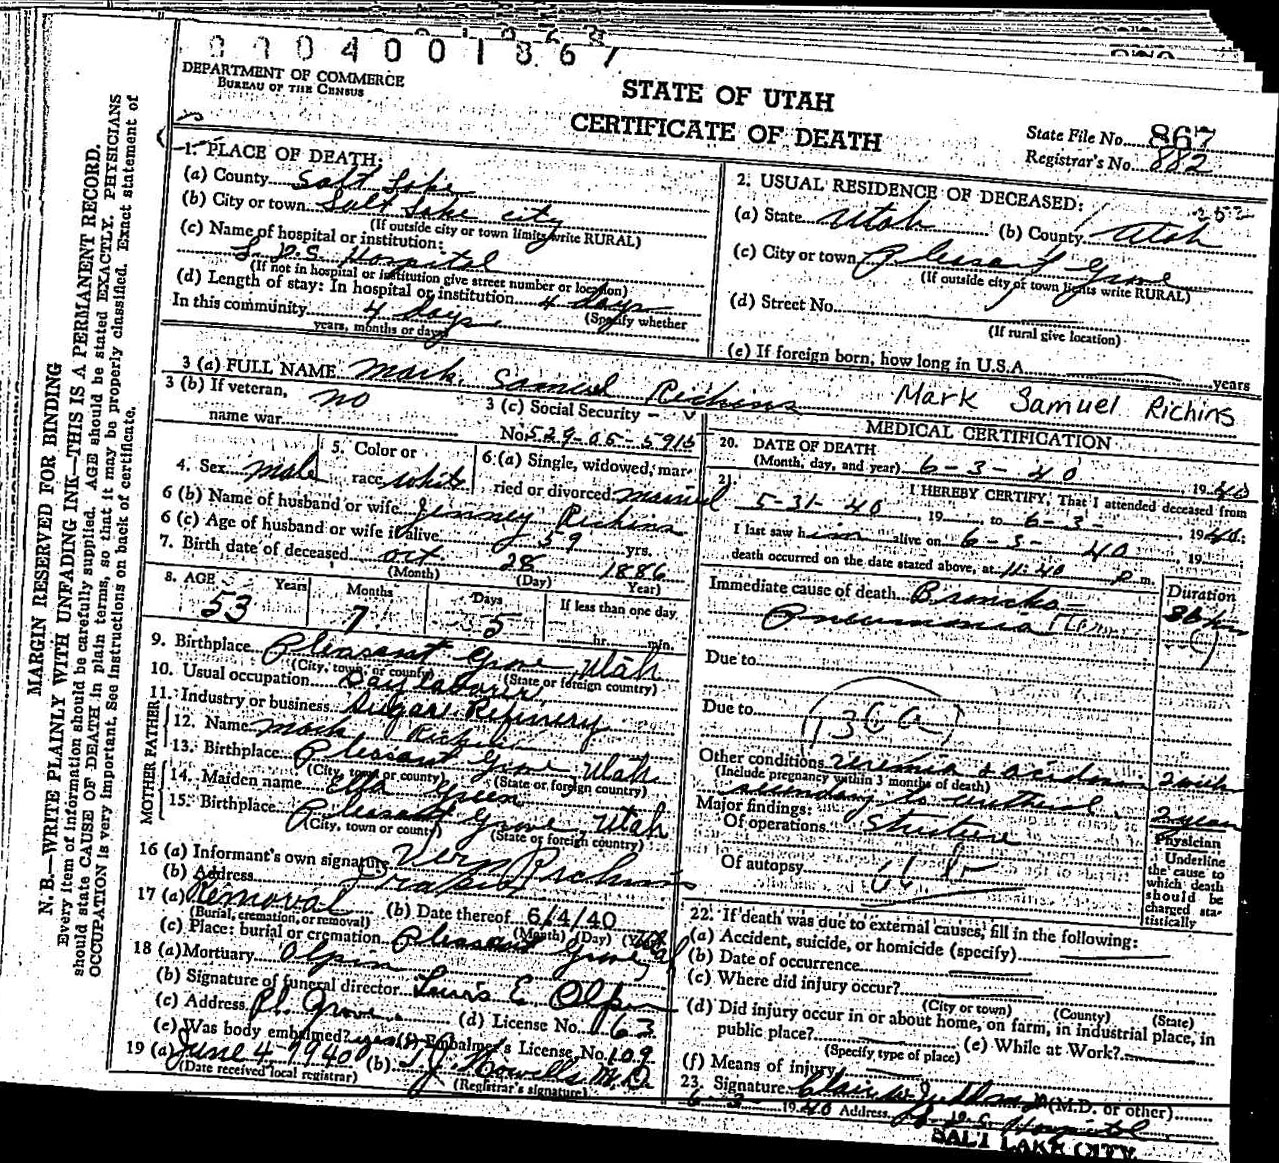 0 0 0 4 0 0 1 8 6 7
DEPARTMENT OF COMMERCE
BUREAU OF THE CENSUS
STATE OF UTAH
CERTIFICATE OF DEATH
State File No. 867
Registrar's No. 882
1. PLACE OF DEATH:
(a) County Salt Lake
(b) City or town Salt Lake City
(If outside city or town limits write RURAL)
(c) Name of hospital or institution:
L.D.S. Hospital
(If not in hospital or institution give street number or location)
(d) Length of stay: In hospital or institution 4 days
(Specify whether
In this community 4 days
years, months or days)
2. USUAL RESIDENCE OF DECEASED:
252
(a) State Utah (b) County Utah
(c) City or town Pleasant Grove
(If outside city or town limits write RURAL)
(d) Street No.
(If rural give location)
(e) If foreign born, how long in U.S.A. years
3 (a) FULL NAME Mark Samuel Richins Mark Samuel Richins
3 (b) If veteran, name war no
3 (c) Social Security
No. 529-05-5915
4. Sex male
5. Color or race white
6 (a) Single, widowed, married or divorced married
6 (b) Name of husband or wife Jenney Richins
6 (c) Age of husband or wife if alive 59 yrs.
7. Birth date of deceased Oct 28 1886
(Month) (Day) (Year)
8. AGE Years Months Days If less than one day
53 7 5 hr. min.
9. Birthplace Pleasant Grove Utah
(City, town, or county) (State or foreign country)
10. Usual occupation Day laborer
11. Industry or business Sugar Refinery
FATHER
12. Name Mark Richins
13. Birthplace Pleasant Grove Utah
(City, town or county) (State or foreign country)
MOTHER
14. Maiden name Green
15. Birthplace Pleasant Grove, Utah
(City, town or county) (State or foreign country)
16 (a) Informant's own signature Vern Richins
(b) Address
17 (a) Removal (b) Date thereof 6/4/40
(Burial, cremation, or removal) (Month) (Day) (Year)
(c) Place: burial or cremation Pleasant Grove,
18 (a) Mortuary Olpin
(b) Signature of funeral director Louis E Olpin
(c) Address Pl. Grove (d) License No. 163
(e) Was body embalmed? yes (f) Embalmer's License No. 109
19 (a) June 4 1940 (b) Howells M.D.
(Date received local registrar) (Registrar's signature)
MEDICAL CERTIFICATION
20. DATE OF DEATH
(Month, day, and year) 6-3-40 , 1940
21 I HEREBY CERTIFY, That I attended deceased from
5-31-40 , 19 to 6-3- , 1940:
I last saw him alive on 6-3- 40 , 19
death occurred on the date stated above, at 11:40 P m.
Immediate cause of death Broncho-
Pneumonia
Duration
36 hrs
Due to
Due to
Other conditions uremia & acidosis
(Include pregnancy within 3 months of death)
secondary to urethral
2 years
Major findings:
Of operations Stricture
Of autopsy
Physician
Underline the cause to which death should be charged statistically
22. If death was due to external causes, fill in the following:
(a) Accident, suicide, or homicide (specify)
(b) Date of occurrence
(c) Where did injury occur?
(City or town) (County) (State)
(d) Did injury occur in or about home, on farm, in industrial place, in
public place? (e) While at Work?
(Specify type of place)
(f) Means of injury
23. Signature (M.D. or other)
6-3- 1940 Address L.D.S. Hospital
SALT LAKE CITY
MARGIN RESERVED FOR BINDING
N. B.—WRITE PLAINLY WITH UNFADING INK—THIS IS A PERMANENT RECORD.
Every item of information should be carefully supplied. AGE should be stated EXACTLY. PHYSICIANS
should state CAUSE OF DEATH in plain terms, so that it may be properly classified. Exact statement of
OCCUPATION is very important. See instructions on back of certificate.